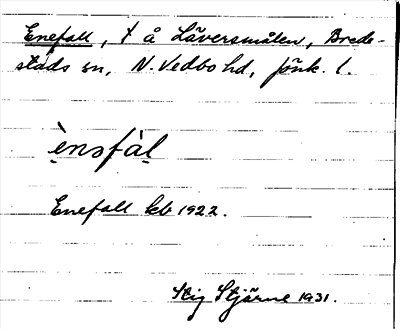 Enefall, t å Läversmålen, Brede-
stads sn, N. Vedbo hd, Jönk. l.
ènsfàl
Enefall kb 1922.
Stig Stjärne 1931.